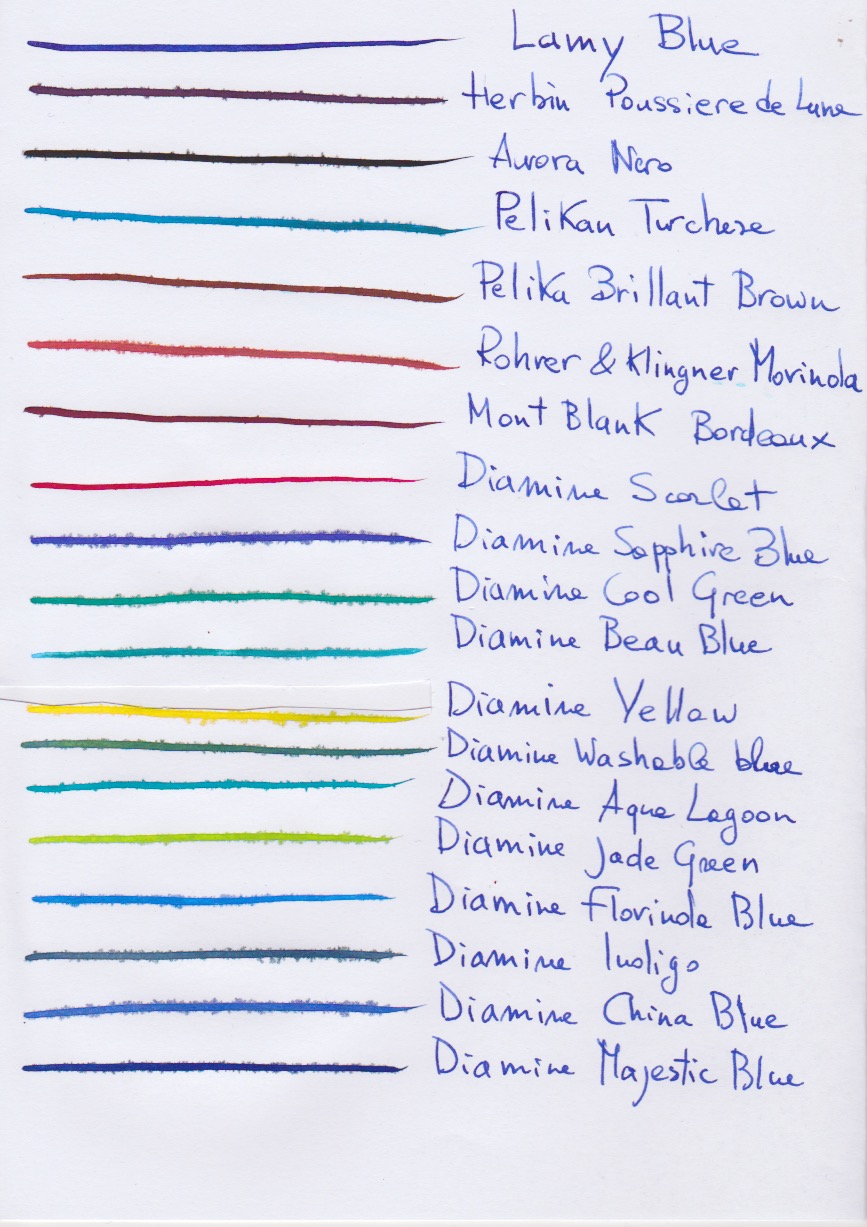 Lamy Blue
Herbin Poussiere de Lune
Aurora Nero
Pelikan Turchese
Pelika Brillant Brown
Rohrer & Klingner Morinda
Mont Blank Bordeaux
Diamine Scarlet
Diamine Sapphire Blue
Diamine Cool Green
Diamine Beau Blue
Diamine Yellow
Diamine Washable blue
Diamine Aqua Lagoon
Diamine Jade Green
Diamine Florinda Blue
Diamine Indigo
Diamine China Blue
Diamine Majestic Blue